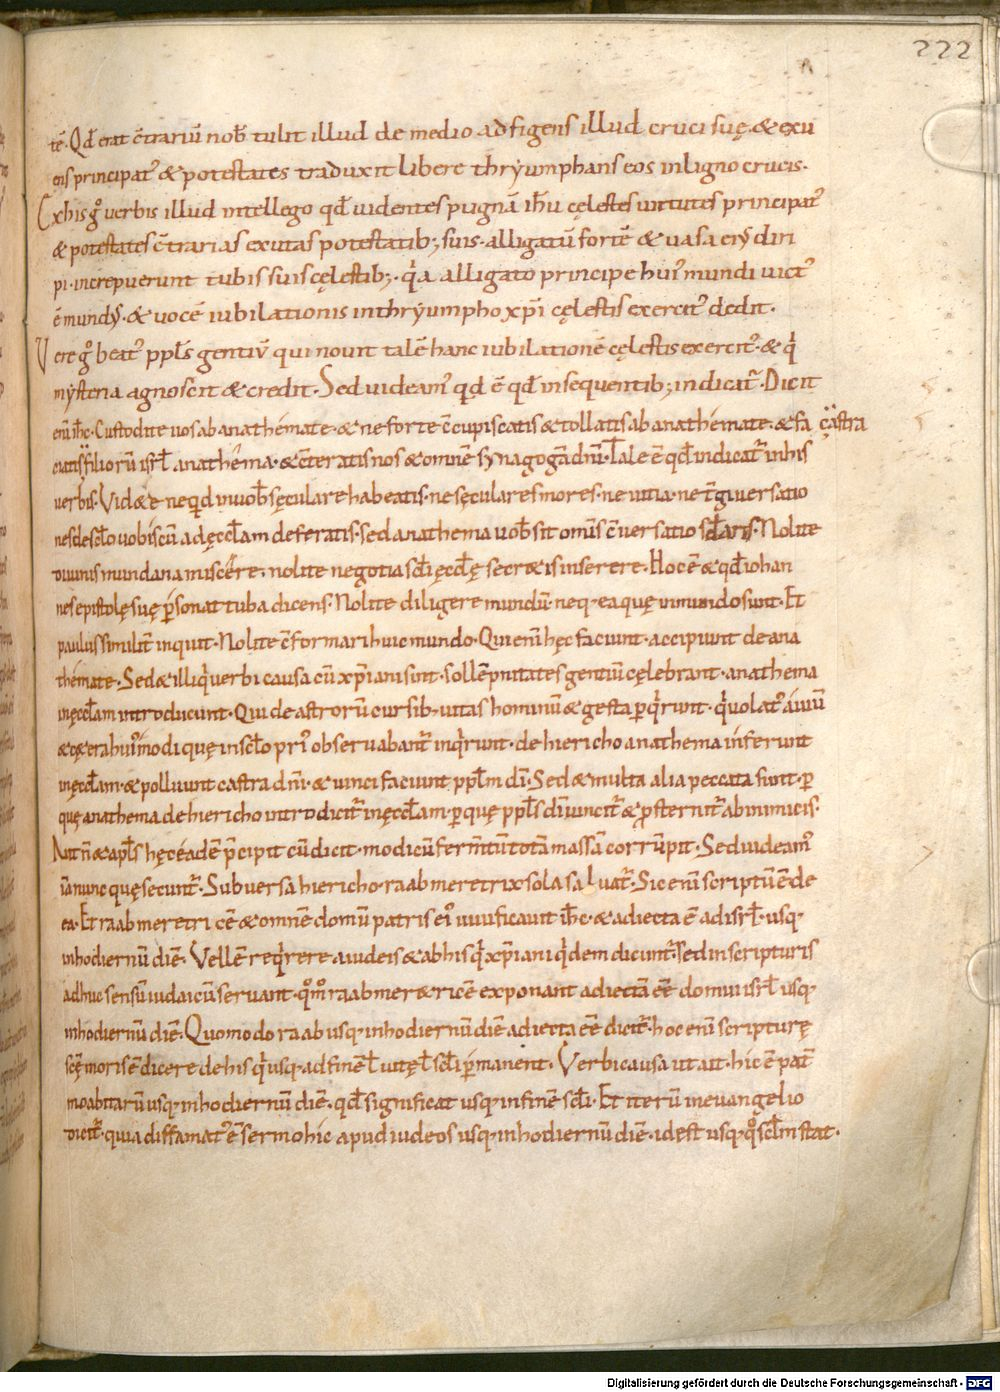 222
tē. Qđ erat c̄trariū nob̄ tulit illud de medio adfigens illud cruci suę. & exu
ens principat᾽ & potestates traduxit libere thryumphans eos in ligno crucis.
Ex his gͦ verbis illud intellego qđ videntes pugnā ih̄u cęlestes virtutes principat᾽
& potestates c̄trarias exutas potestatib; suis. alligatū fortē & vasa ei᾽ diri
pi. increpuerunt tubis suis cęlestib;. qͥa alligato principe hui᾽ mundi vict᾽
ē mund᾽. & vocē iubilationis in thryumpho xp̄i cęlestis exercit᾽ dedit.
Vere gͦ beat᾽ ppl̄s gentiū qui novit talē hanc iubilationē cęlestis exercit᾽. & qͥ
mysteria agnoscit & credit. Sed videam᾽ qđ ē qđ in sequentib; indicat᾽. Dicit
enī ih̄c. Custodite vos ab anathémate. & ne forte c̄cupiscatis & tollatis ab anathémate. & fa castra
ciatis filiorū isrl̄ anathêma. & c̄teratis nos & omnē synagogā dn̄i. Tale ē qđ indicat᾽ in his
verbis. Vid&e ne qͥd in vob̄ sęculare habeatis. ne sęculares mores. ne vitia. ne t̄giversatio
nes desclo vobiscū ad ęccl̄am deferatis. sed anathema vob̄ sit omīs c̄versatio scl̄aris. Nolite
divinis mundana miscére. nolite negotia scl̄i ęccl̄ę secr&is inserere. Hoc ē & qđ iohan
nes epistolę suę p̄sonat tuba dicens. Nolite diligere mundū. neq; ea quę in mundo sunt. Et
paulus similit̄ inquit. Nolite c̄formari huic mundo. Qui enī hęc faciunt. accipiunt de ana
thémate. Sed & illi qͥ verbi causa cū xp̄iani sint. sollēpnitates gentiū cęlebrant. anathema
in ęccl̄am introducunt. Qui de astrorū cursib; vitas hominū & gesta pq̄runt. qͥ volat᾽ aviū
& c&era hui᾽modi quę in sclo pri᾽ observabant᾽ inqͥrunt. de hiericho anathema inferunt
in ęccl̄am. & polluunt castra dn̄i. & vinci faciunt ppl̄m dī. Sed & multa alia peccata sunt. p
quę anathema de hiericho introdicit᾽ in ęccl̄am. p quę ppl̄s dī vincit᾽ & psternit᾽ ab inimicis.
Nūn & apl̄s hęc éadē p̄cipit cū dicit. modicū ferm̄tū totā massā corrūpit. Sed videam᾽
iā nunc quę secunt᾽. Subversa hiericho. raab meretrix sola salvat᾽. Sic enī scriptū ē de
ea. Et raab meretricē & omnē domū patris ei᾽ vivificavit ih̄c. & adiecta ē ad isrl̄. usq;
in hodiernū diē. Vellē reqͥrere a iudeis & ab his qͥ xp̄iani qͥdem dicunt᾽. sed in scripturis
adhuc sensū iudaicū servant. qͦmͦ raab mer&ricē exponant adiectā ēē domui isrl̄ usq;
in hodiernū diē. Quomodo raab usq; in hodiernū diē adiecta ēē dicit᾽. hoc enī scripturę
scę̄ moris ē dicere de his qͥ usq; ad finē l̄ vitę l̄ scl̄i pmanent. Verbi causa ut ait. hic ē pat̄
moabitarū usq; in hodiernū diē. qđ significat usq; in finē scl̄i. Et iterū in evangelio
dicit᾽. quia diffamat᾽ ē sermo hic apud iudeos usq; in hodiernū diē. id ęst usq; qͦ scl̄m stat.
Digitalisierung gefördert durch die Deutsche Forschungsgemeinschaft - DFG